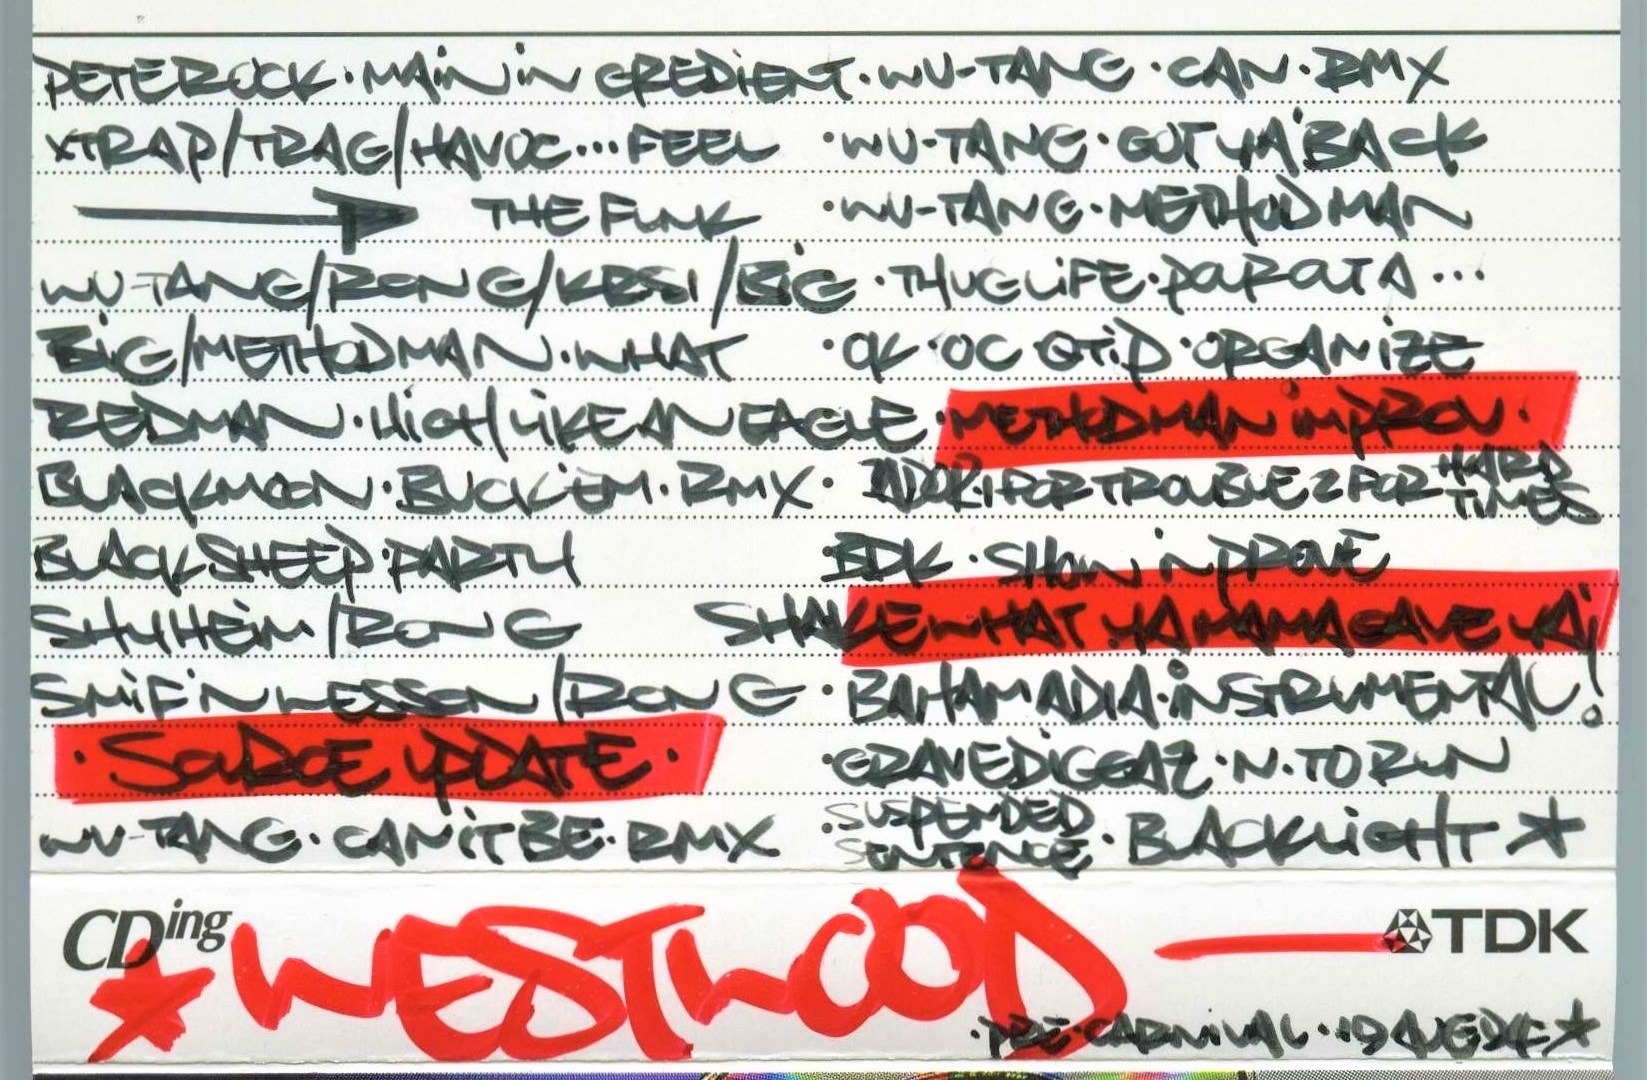 PETE ROCK · MAIN INGREDIENT
XTRAP/TRAG/HAVOC...FEEL
THE FUNK
WU-TANG/RONG/KRS1/BIG
BIG/METHODMAN · WHAT
REDMAN · HIGH LIKE AN EAGLE
BLACKMOON · BUCKEM · RMX
BLACKSHEEP · PARTY
SHYHEIM/RONG
SMIF'N WESSON/RONG
· SOURCE UPDATE ·
WU-TANG · CAN IT BE · RMX
· WU-TANG · CAN · RMX
· WU-TANG · GOT YA' BACK
· WU-TANG · METHOD MAN
· THUG LIFE · POUR OUT A ...
· OK · OC QTIP · ORGANIZE
· METHODMAN IMPROV ·
· 1 FOR TROUBLE 2 FOR HARD TIMES
· BDK · SHOW N PROVE
SHAKE WHAT YA MAMA GAVE YA!
· BAHAMADIA · INSTRUMENTAL!
· GRAVEDIGGAZ · N · TO RUN
· SUSPENDED SENTENCE · BLACKLIGHT ★
CDing
★ WESTWOOD
TDK
· PRE · CARNIVAL · 19 AUG 94 ★